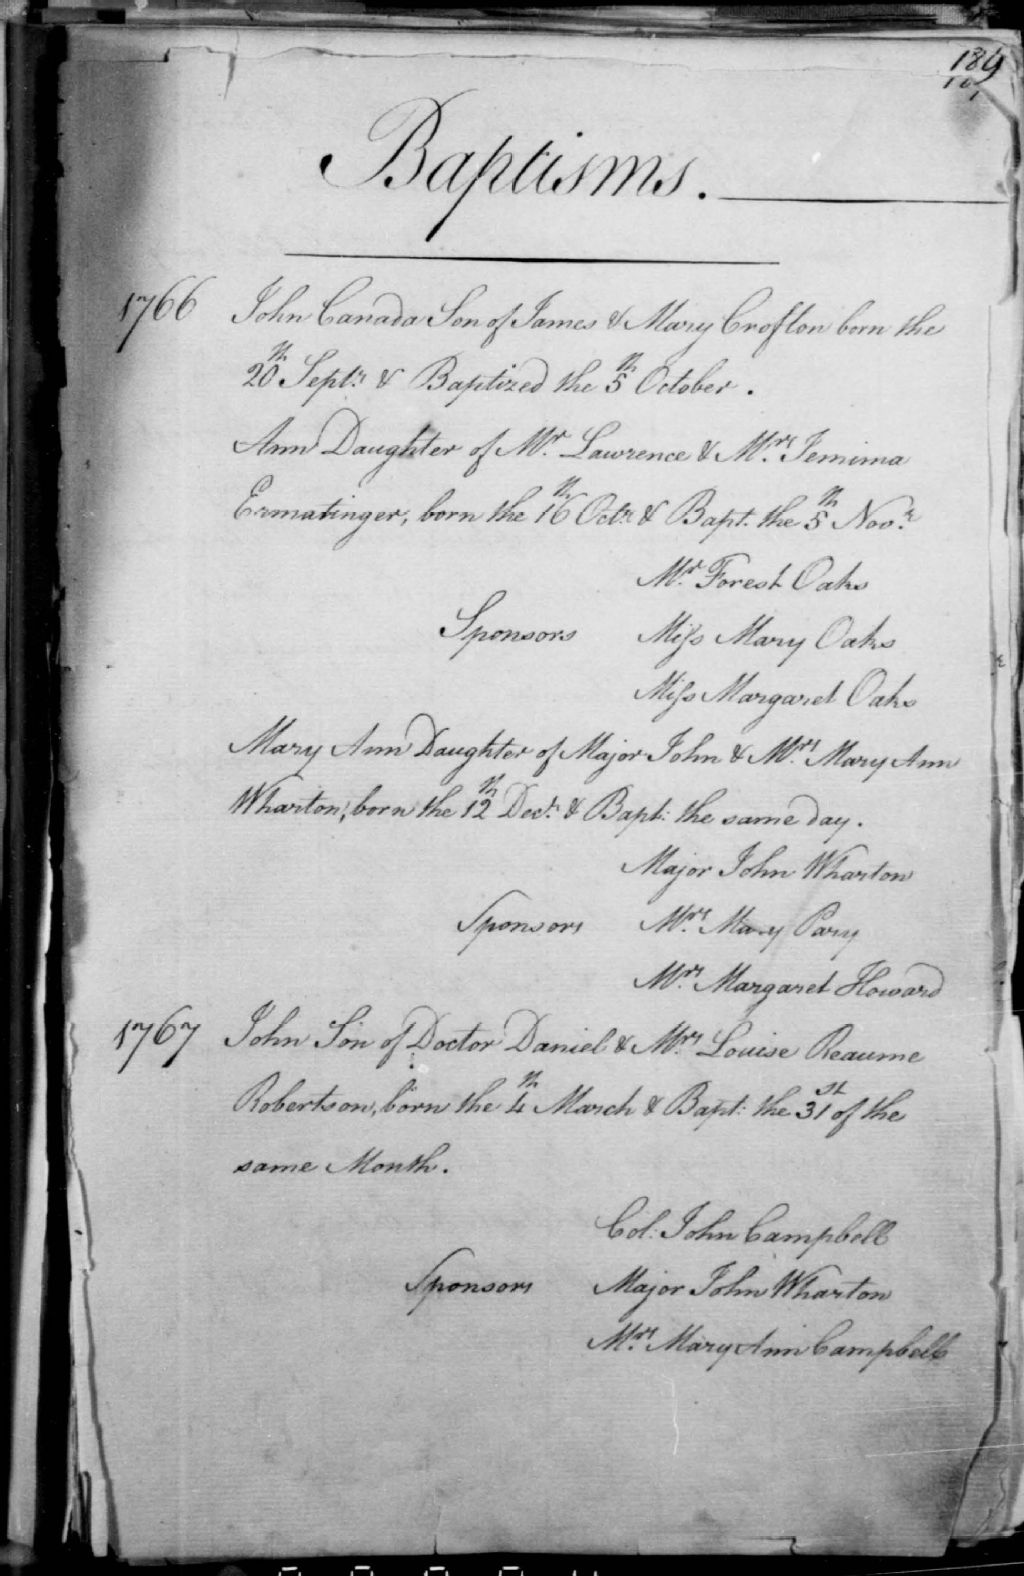 189
Baptisms.
1766 John Canada Son of James & Mary Crofton born the
20th Septr. & Baptized the 5th October.
Ann Daughter of Mr. Lawrence & Mrs. Jemima
Ermatinger, born the 16th Octr. & Bapt. the 5th Novr.
Mr. Forest Oaks
Sponsors Miss Mary Oaks
Miss Margaret Oaks
Mary Ann Daughter of Major John & Mrs. Mary Ann
Wharton, born the 12th Decr. & Bapt: the same day.
Major John Wharton
Sponsors Mrs. Mary Parry
Mrs. Margaret Howard
1767 John Son of Doctor Daniel & Mrs. Louise Reaume
Robertson, born the 4th March & Bapt: the 31st of the
same Month.
Col: John Campbell
Sponsors Major John Wharton
Mrs. Mary Ann Campbell